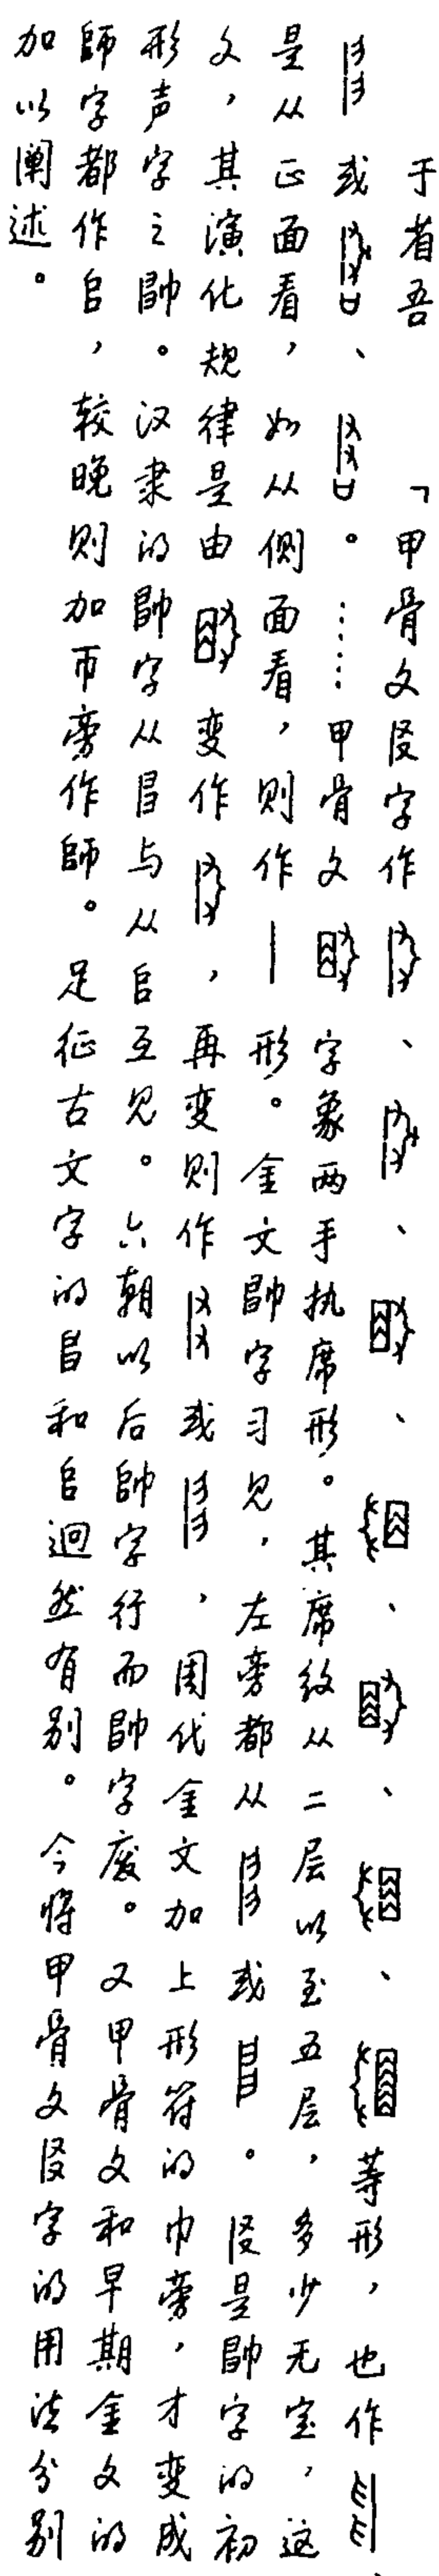 于省吾 「甲骨文字作、、、、、、等形,也作
或、。……甲骨文字象两手执席形。其席纹从二层以至五层,多少无定,这
是从正面看,如从侧面看,则作丨形。金文帥字习见,左旁都从或。是帥字的初
文,其演化规律是由变作,再变则作或,周代金文加上形符的巾旁,才变成
形声字之帥。汉隶的帥字从与从𠂤互见。六朝以后帥字行而字废。又甲骨文和早期金文的
師字都作𠂤,较晚则加帀旁作師。足征古文字的和𠂤迥然有别。今将甲骨文字的用法分别
加以阐述。